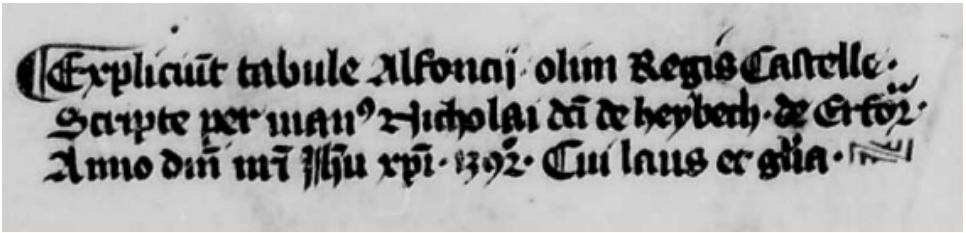 ¶Expliciūt tabule Alfoncij · olim Regis Castelle ·
Scripte per manꝰ Nicholai dc̄i de heybech · de Erfor̄ ·
Anno dm̄i nr̄i Jh̄u xp̄i · 1392 · Cui laus et gl̄ia ·